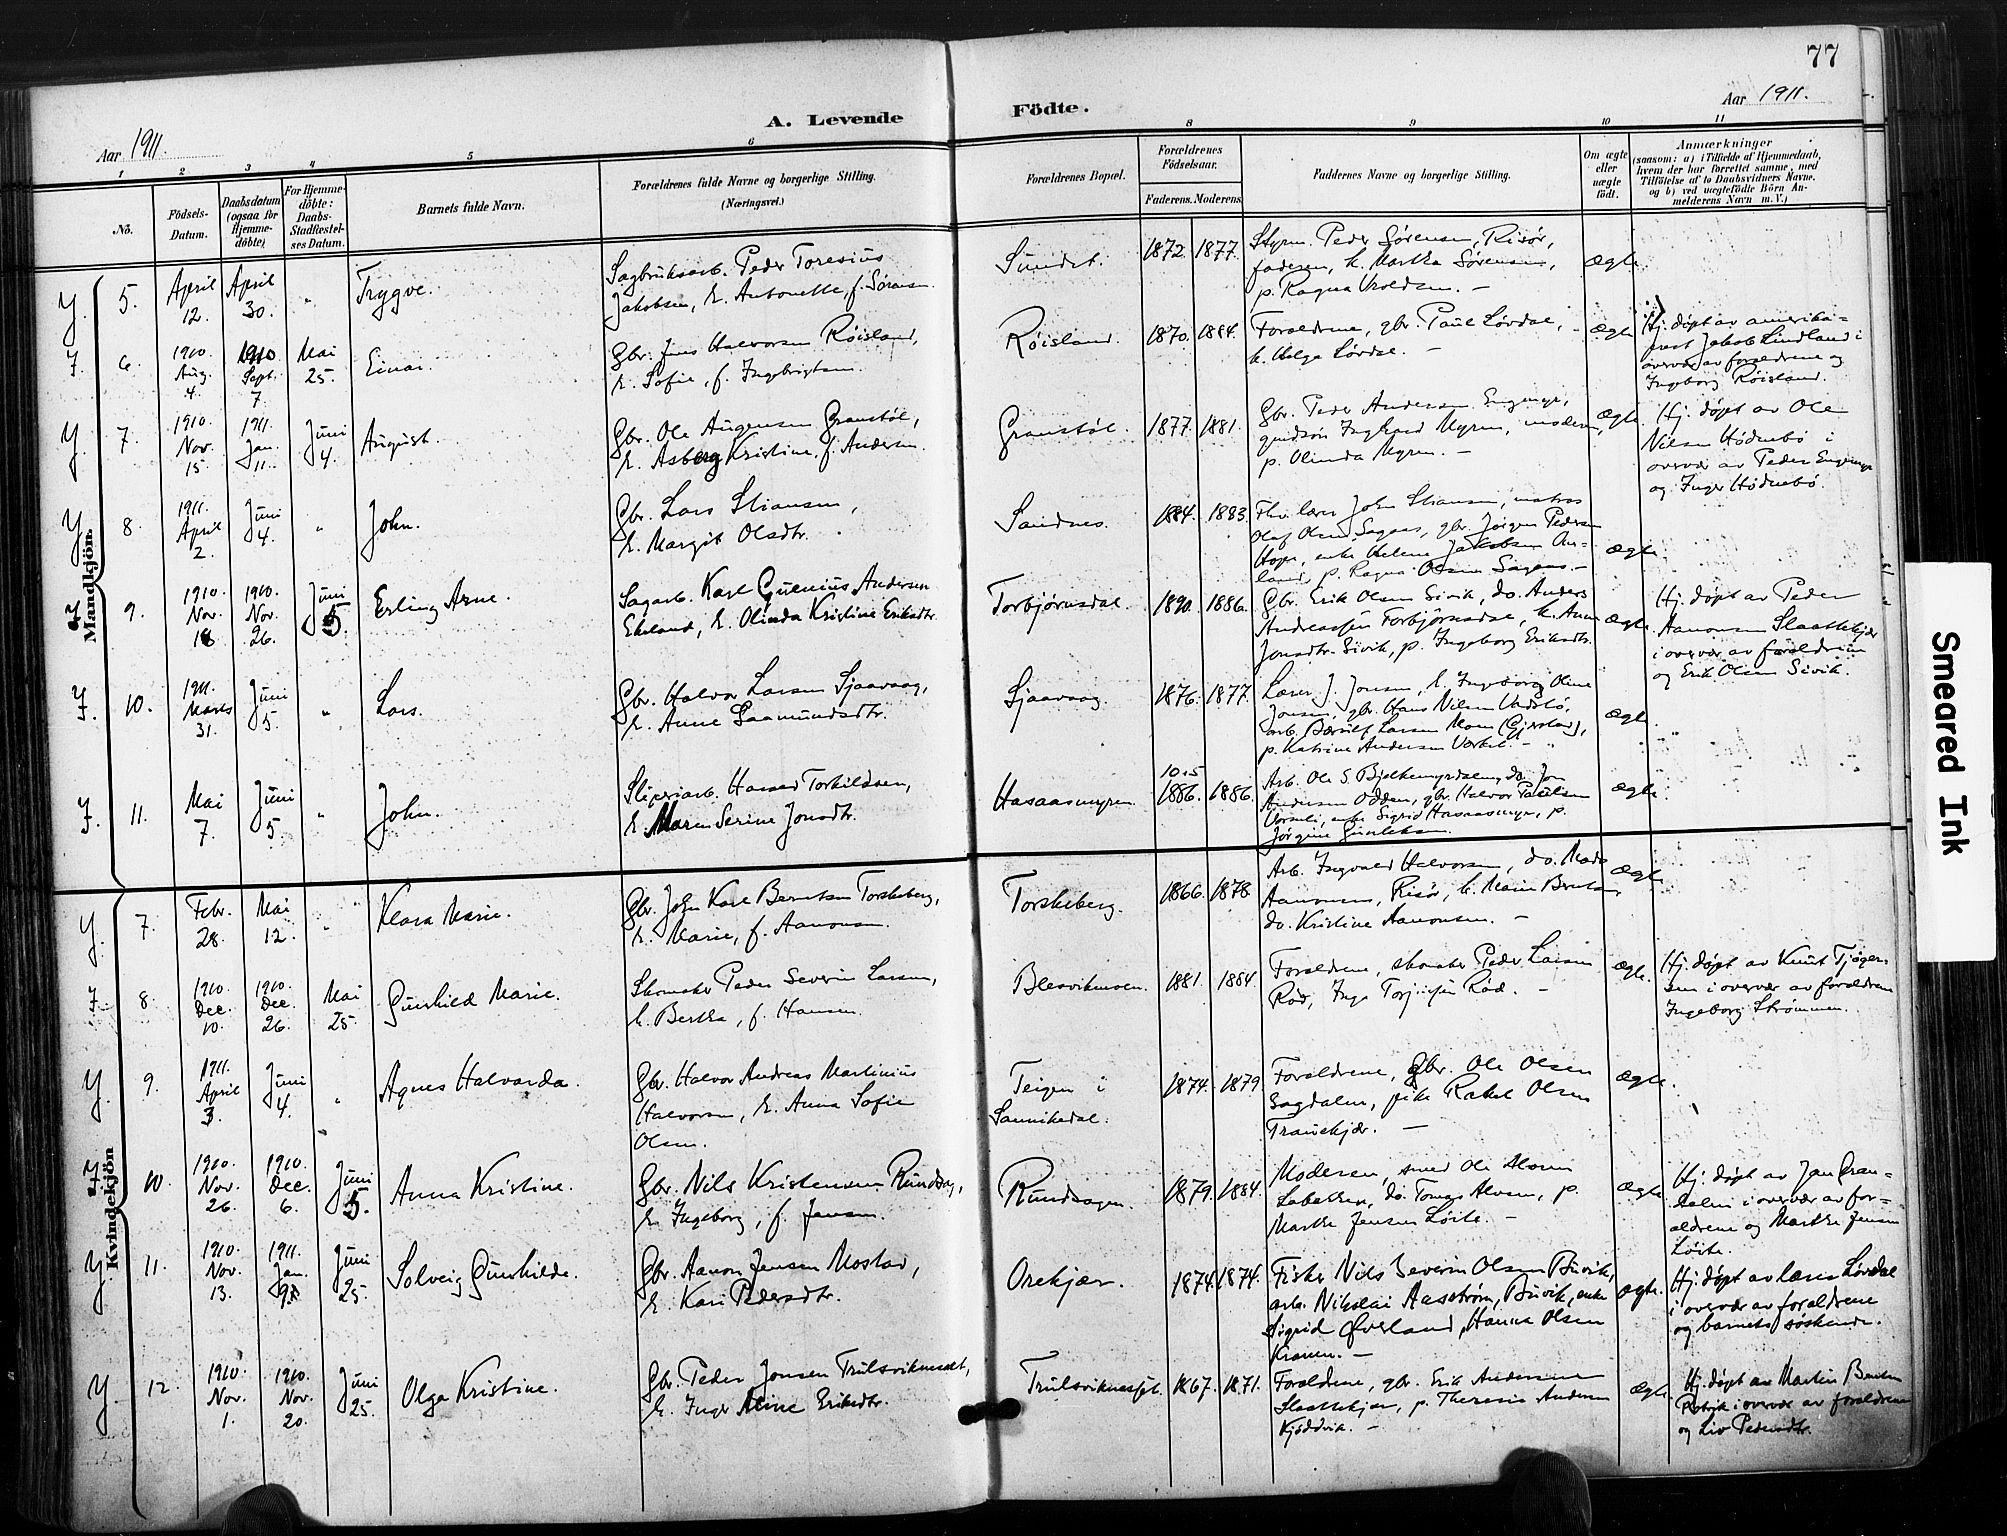 77
Aar 1911.
A. Levende
Födte.
Aar 1911.
1 2 3 4 5 6 8 9 10 11
No.
Födsels-Datum.
Daabsdatum (ogsaa for Hjemme-döbte)
For Hjemme-döbte: Daabs-Stadfæstel-ses Datum.
Barnets fulde Navn.
Forældrenes fulde Navne og borgerlige Stilling.
(Næringsvei.)
Forældrenes Bopæl.
Forældrenes Födselsaar.
Faderens. Moderens.
Faddernes Navne og borgerlige Stilling.
Om ægte eller uægte födt.
Anmærkninger
(saasom: a) i Tilfælde af Hjemmedaab, hvem der har forrettet samme, med Tilföielse af to Daabsvidners Navne. og b) ved uægtefödte Börn Anmelderens Navn m. V.)
Mandkjön.
Y. 5. April 12. April 30. " Trygve.
Sagbruksarb. Peder Toresius
Jakobsen, h. Antonette, f. Sørensen.
Sundet. 1872. 1877.
Styrm. Peder Sørensen, Risør,
faderen, k. Martha Sørensen,
p. Ragna Uroldsen. —
ægte
F. 6. 1910. Aug. 4. 1910 Sept. 7 Mai 25. Einar.
Gbr. Jens Halvorsen Røisland,
h. Sofie, f. Ingebrigtsen.
Røisland. 1870. 1884.
Forældrene, gbr. Paul Løvdal,
k. Helga Løvdal. —
ægte
Hj. døpt av amerika-
prest Jakob Lindland i
overvær av forældrene og
Ingeborg Røisland.
Y. 7. 1910. Nov. 15. 1911. Jan. 11. Juni 4. August.
Gbr. Ole Augensen Granstøl,
h. Asberg Kristine, f. Andersen.
Granstøl. 1877. 1881.
Gbr. Peder Andersen Engemyr,
moderen,
p. Olinda Myren. —
ægte.
Hj. døpt av Ole
Nilsen Hødnebø i
overvær av Peder Engemyr
og Inger Hødnebø.
Y. 8. 1911. April 2. Juni 4. " John.
Gbr. Lars Stiansen,
h. Margit Olsdtr.
Sandnes. 1884. 1883.
Fhv. lærer John Stiansen, matros
Olaf Olsen Sagaas, gbr. Jørgen Pedersen
enke Helene Jakobsen
p. Ragna Olsen Sagaas. —
ægte.
F. 9. 1910. Nov. 18. 1910. Nov. 26. Juni 5. Erling Arne.
Sagarb. Karl Gunnius Andersen
Ekeland, h. Olinda Kristine Eriksdtr.
Torbjørnsdal. 1890. 1886.
Gbr. Erik Olsen Sivik, do. Anders
Andreassen Torbjørnsdal, k. Anne
Jonsdtr. Sivik, p. Ingeborg Eriksdtr.
ægte
Hj. døpt av Peder
Aanonsen Slaattekjær
i overvær av forældrene
og Erik Olsen Sivik.
F. 10. 1911. Marts 31. Juni 5. " Lars.
Gbr. Halvor Larsen Sjaavaag,
h. Anne Gaamundsdtr.
Sjaavaag. 1876. 1877.
Lærer J. Jonsen, h. Ingeborg Oline
Jonsen, gbr. Hans Nilsen
arb. Larsen Moen (Gjerstad),
p. Katrine Andersen
ægte.
F. 11. Mai 7. Juni 5. " John.
Sliperiarb. Harald Torkildsen,
h. Maren Serine Jonsdtr.
Hasaasmyren. 10.5 1886. 1886.
Arb. Ole S. Bjelkemyrdalen, do. Jon
Andersen Odden, gbr. Halvor Paulsen
enke Sigrid Hasaasmyr, p.
Jørgine Gunleksen.
ægte.
Kvindekjön
Y. 7. Febr. 28. Mai 12. " Klara Marie.
Gbr. John Karl Berntsen Torskeberg,
h. Marie, f. Aanonsen.
Torskeberg. 1866. 1878.
Arb. Ingvald Halvorsen, do. Mads
Aanonsen, Risør, k. Marie Berntsen,
do. Kristine Aanonsen. —
ægte
F. 8. 1910. Dec. 10. 1910. Dec. 26. Mai 25. Gunhild Marie.
Skomaker Peder Severin Larsen,
h. Bertha, f. Hansen.
Blesvikmoen. 1881. 1884.
Forældrene, skomaker Peder Larsen
Rød, Inga Torjussen Rød. —
ægte.
Hj. døpt av Knut Tjøger-
sen i overvær av forældrene
Ingeborg Strømmen.
Y. 9. 1911. April 3. Juni 4. " Agnes Halvarda.
Gbr. Halvor Andreas Martinius
Halvorsen, h. Anna Sofie
Olsen.
Teigen i
Sannikedal.
1874. 1879.
Forældrene, gbr. Ole Olsen
Sagdalen, pike Rakel Olsen
Tranekjær. —
ægte.
Y. 10. 1910. Nov. 26. 1910. Dec. 6. Juni 5. Anna Kristine.
Gbr. Nils Kristensen Runddag,
h. Ingeborg, f. Jensen.
Rundaagen. 1879. 1884.
Moderen, smed Ole Moen
do. Tomas Moen, p.
Marthe Jensen Løite. —
ægte
Hj. døpt av Jan Gran-
dalen i overvær av for-
ældrene og Marthe Jensen
Løite.
Y. 11. 1910. Nov. 13. 1911. Jan. Juni 25. Solveig Gunhilde.
Gbr. Aanon Jensen Mostad,
h. Kari Pedersdtr.
Orekjær. 1874. 1874.
Fisker Nils Severin Olsen Buvik,
arb. Nikolai Aasstrøm, Buvik, enke
Sigrid Øverland, Hanna Olsen
Kranen. —
ægte.
Hj. døpt av lærer Løvdal
i overvær av forældrene
og barnets søskende.
Y. 12. 1910. Nov. 1. 1910. Nov. 20. Juni 25. Olga Kristine.
Gbr. Peder Jonsen Trulsviknesset,
h. Inger Aline Eriksdtr.
Trulsviknesset. 1867. 1871.
Forældrene, gbr. Erik Andersen
Slaattekjær, p. Theresie Andersen
Kjøddvik. —
ægte.
Hj. døpt av Martin Berntsen
i overvær av forældrene
og Liv Pedersdtr.
Smeared Ink